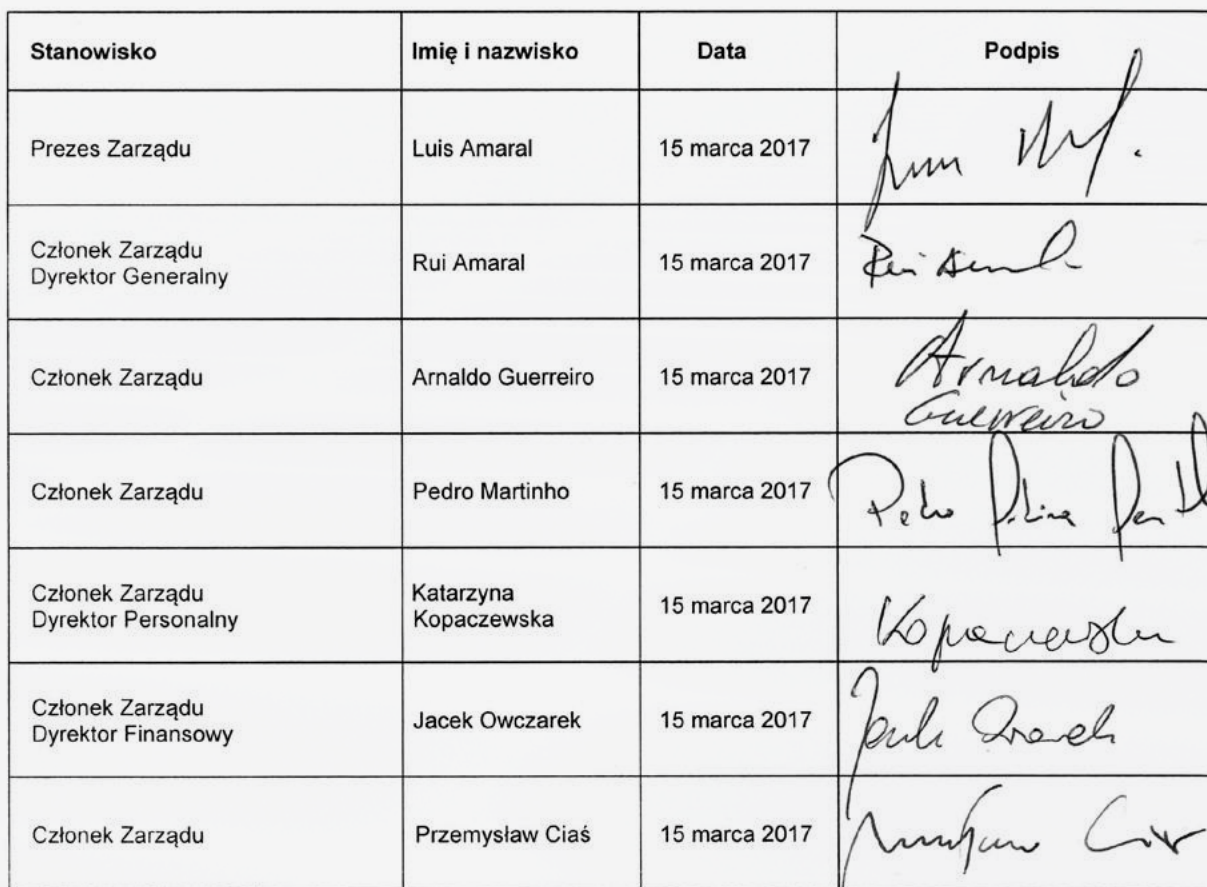 Stanowisko Imię i nazwisko Data Podpis
Prezes Zarządu Luis Amaral 15 marca 2017
Członek Zarządu
Dyrektor Generalny Rui Amaral 15 marca 2017 Rui
Członek Zarządu Arnaldo Guerreiro 15 marca 2017 Arnaldo
Guerreiro
Członek Zarządu Pedro Martinho 15 marca 2017 Pedro
Członek Zarządu
Dyrektor Personalny Katarzyna
Kopaczewska 15 marca 2017 Kopaczewska
Członek Zarządu
Dyrektor Finansowy Jacek Owczarek 15 marca 2017
Członek Zarządu Przemysław Ciaś 15 marca 2017